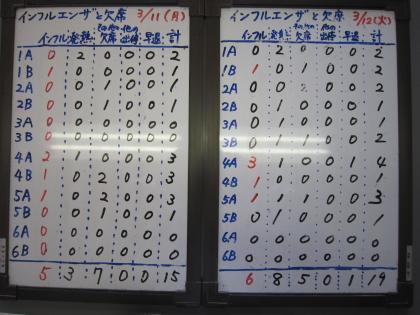 インフルエンザと欠席 3/11(月)
インフル 発熱 その他の欠席 他の出停 早退 計
1A 0 2 0 0 0 2
1B 1 0 0 0 0 1
2A 0 0 1 0 0 1
2B 0 0 1 0 0 1
3A 0 0 0 0 0 0
3B 0 0 0 0 0 0
4A 2 1 0 0 0 3
4B 1 0 2 0 0 3
5A 1 0 2 0 0 3
5B 0 0 1 0 0 1
6A 0 0 0 0 0 0
6B 0 0 0 0 0 0
5 3 7 0 0 15
インフルエンザと欠席 3/12(火)
インフル 発熱 その他の欠席 他の出停 早退 計
1A 0 2 0 0 0 2
1B 1 0 1 0 0 2
2A 0 0 2 0 0 2
2B 0 1 0 0 0 1
3A 0 1 0 0 0 1
3B 0 1 1 0 0 2
4A 3 1 0 0 1 4
4B 1 0 0 0 0 1
5A 1 1 1 0 0 3
5B 0 1 0 0 0 1
6A 0 0 0 0 0 0
6B 0 0 0 0 0 0
6 8 5 0 1 19